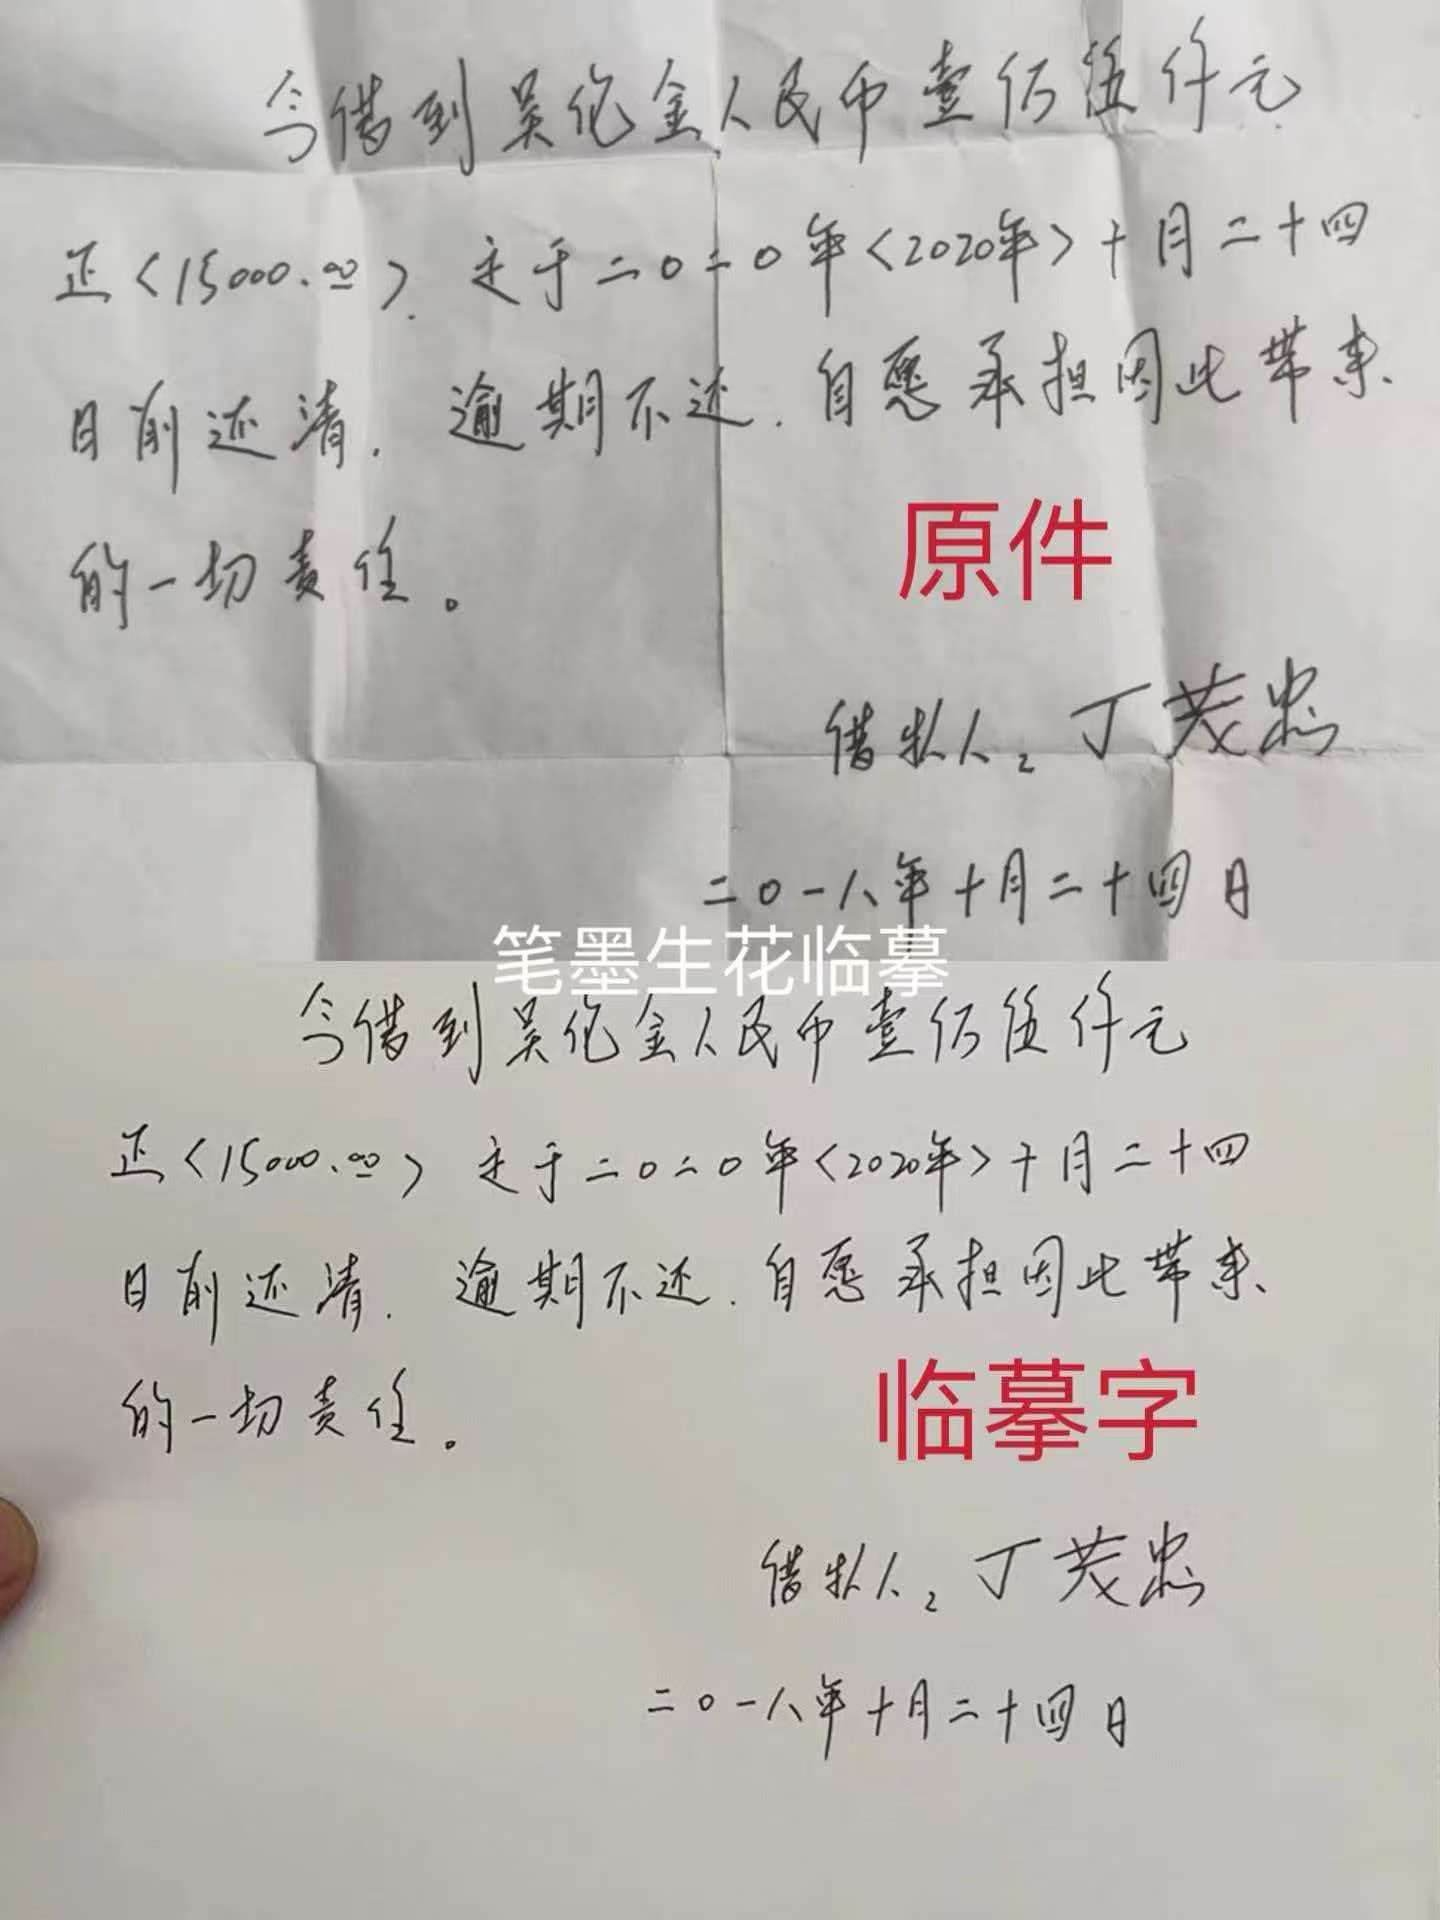 今借到吴伦金人民币壹佰伍仟元
正<15000.00>. 定于二〇二〇年<2020年>十月二十四
日前还清. 逾期不还.自愿承担因此带来
的一切责任。
原件
借款人: 丁茂忠
二〇一八年十月二十四日
笔墨生花临摹
今借到吴伦金人民币壹佰伍仟元
正<15000.00> 定于二〇二〇年<2020年>十月二十四
日前还清. 逾期不还.自愿承担因此带来
的一切责任。
临摹字
借款人: 丁茂忠
二〇一八年十月二十四日